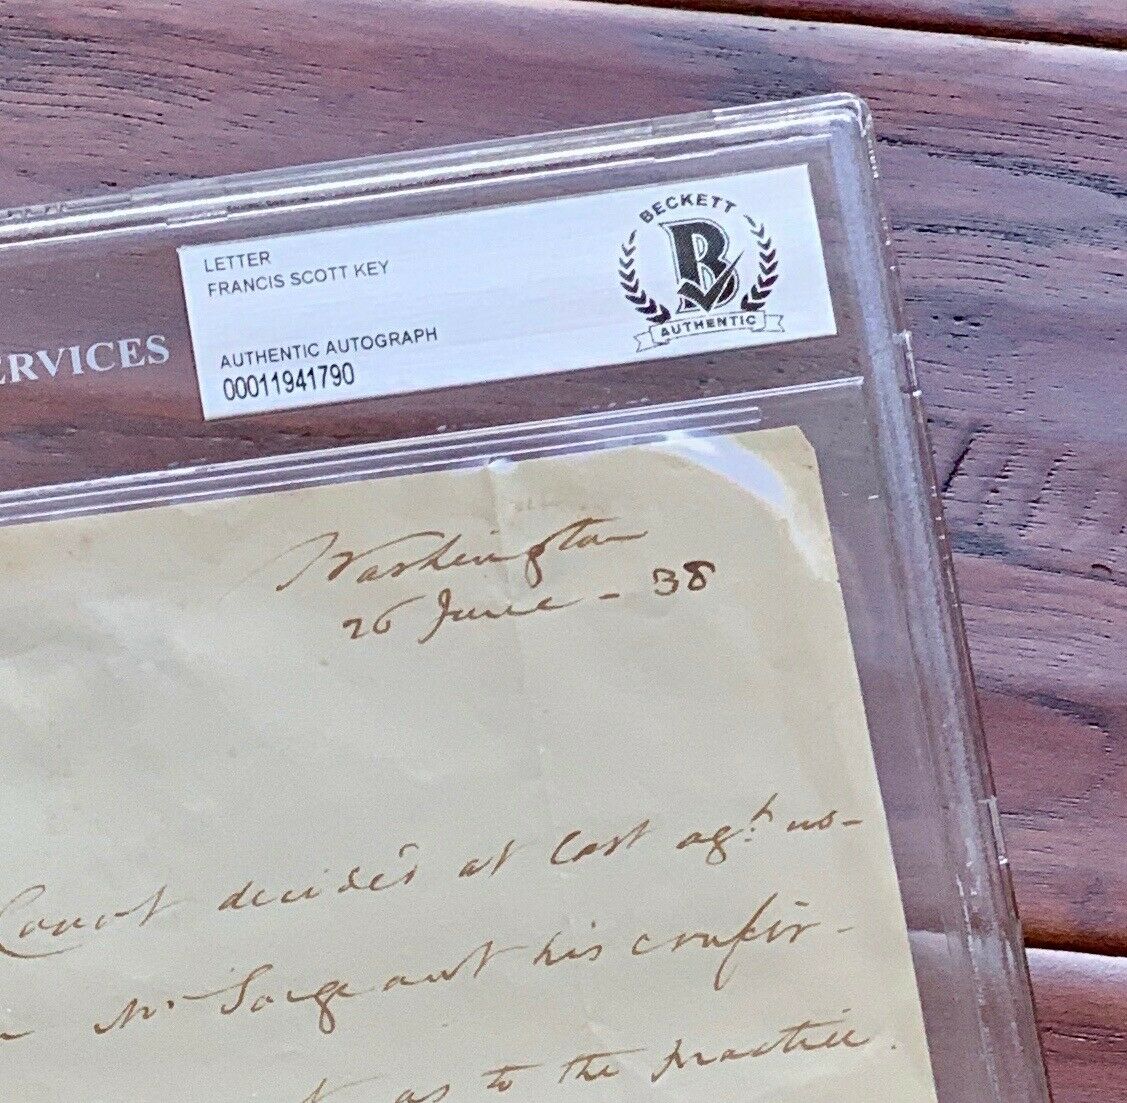 BECKETT
AUTHENTIC
LETTER
FRANCIS SCOTT KEY
AUTHENTIC AUTOGRAPH
00011941790
ERVICES
Washington
26 June - 38
Court decides at last agt. us-
Mr Sargeant his confir-
as to the practice.